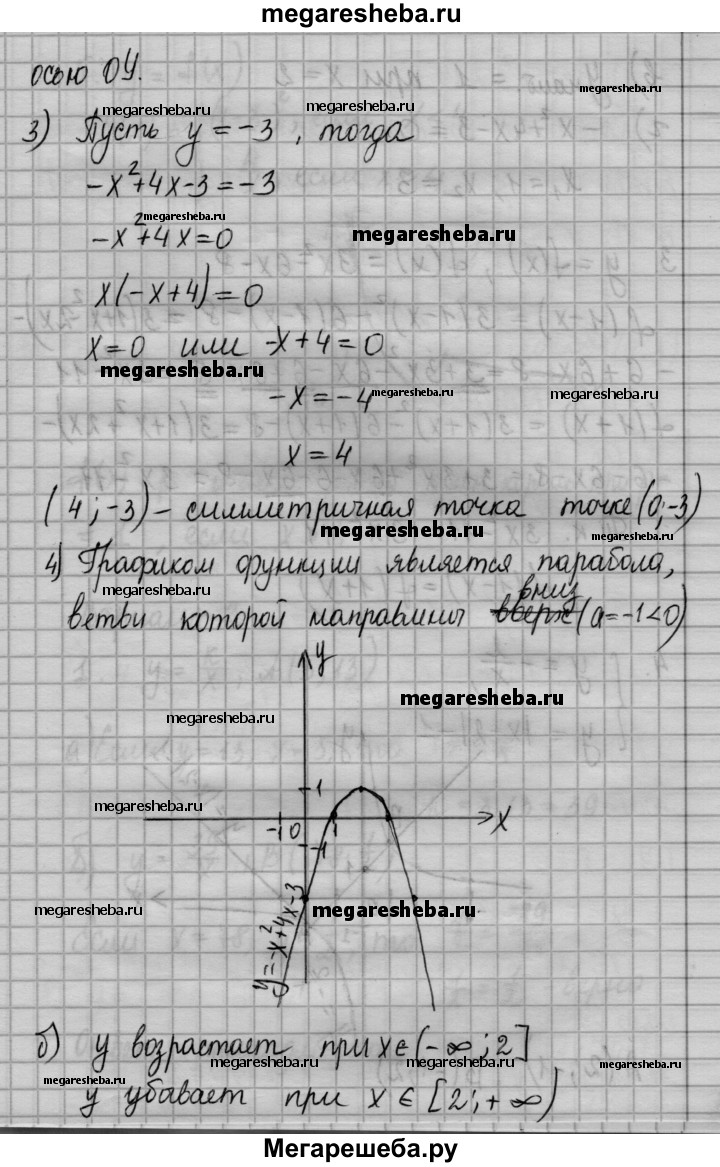 megaresheba.ru
осью OY.
megaresheba.ru megaresheba.ru megaresheba.ru
3) Пусть y = -3, тогда
-x²+4x-3=-3
megaresheba.ru
-x²+4x=0 megaresheba.ru
x(-x+4)=0
x=0 или -x+4=0
megaresheba.ru
-x=-4 megaresheba.ru megaresheba.ru
x=4
(4;-3) – симметричная точка точке (0;-3)
megaresheba.ru megaresheba.ru
4) Графиком функции является парабола,
megaresheba.ru вниз megaresheba.ru
ветви которой направлины вверх (a=-1<0)
y
megaresheba.ru
megaresheba.ru
1
megaresheba.ru
-1 0 1 x
-1
megaresheba.ru megaresheba.ru megaresheba.ru
y=-x²+4x-3
б) y возрастает при x∈(-∞;2]
megaresheba.ru megaresheba.ru megaresheba.ru megaresheba.ru
y убывает при x∈[2;+∞)
Мегарешеба.ру